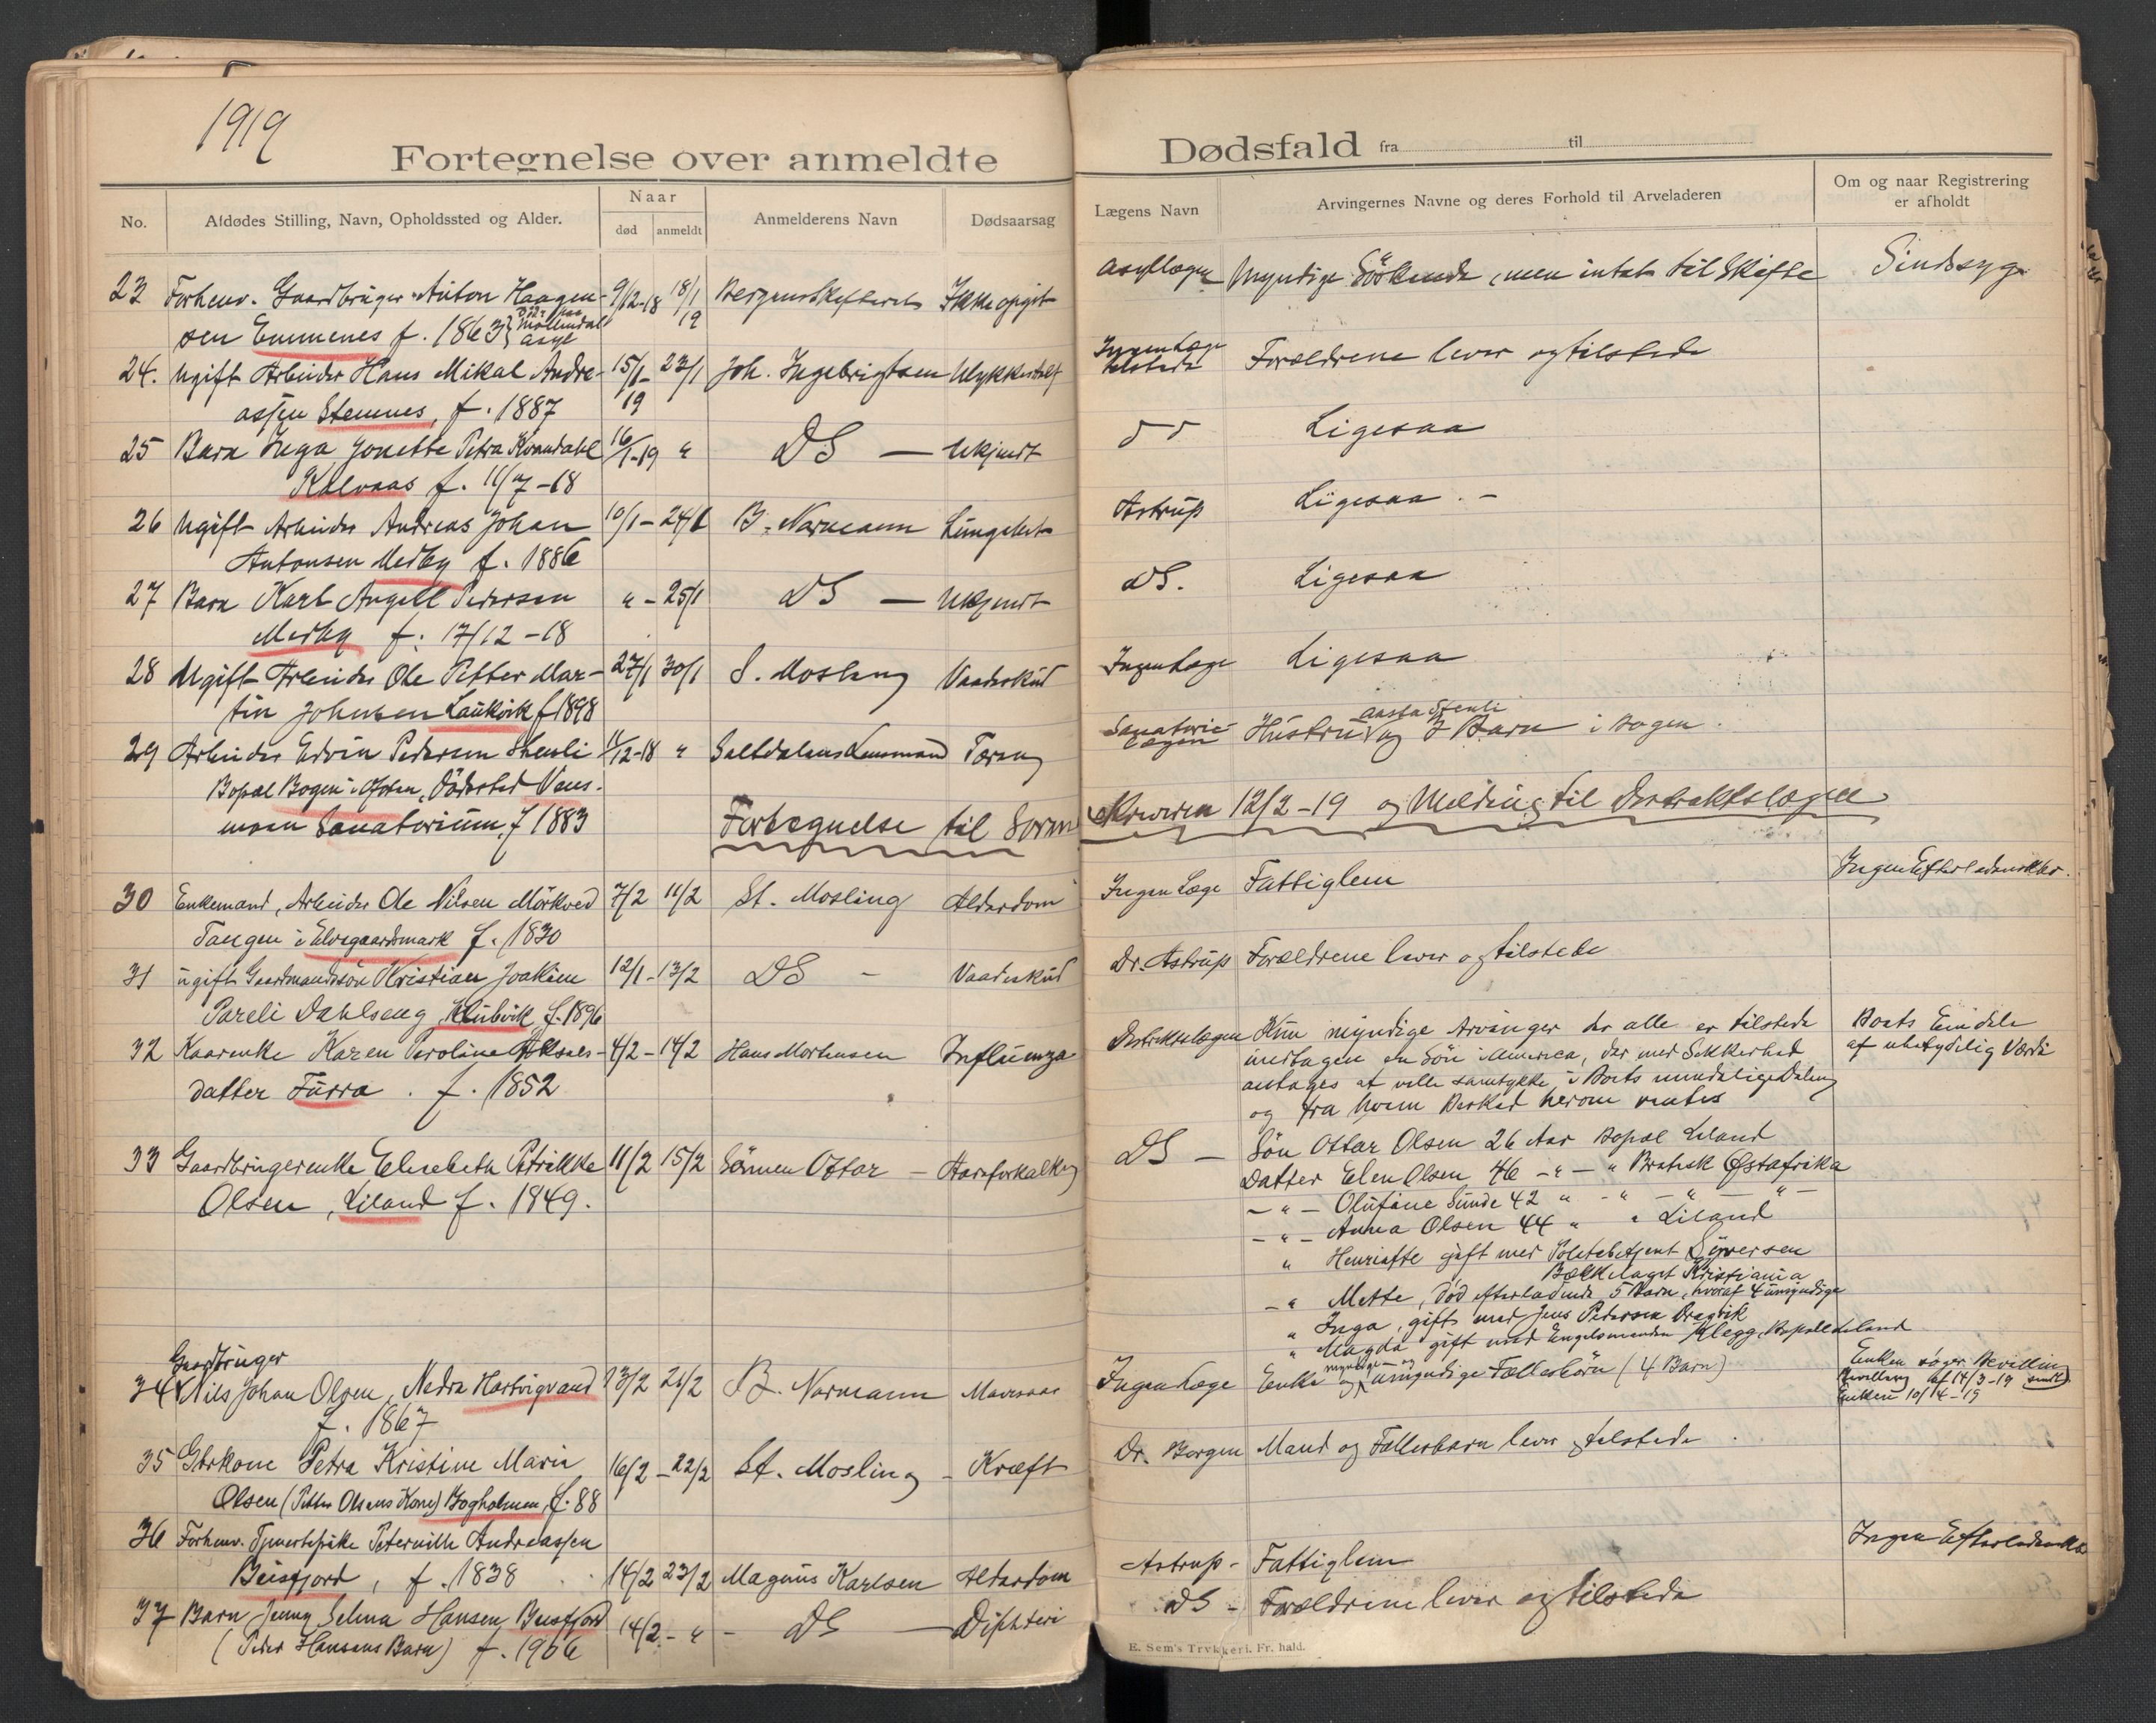 1919
Fortegnelse over anmeldte
Dødsfald fra til
No.
Afdødes Stilling, Navn, Opholdssted og Alder.
Naar
død
anmeldt
Anmelderens Navn
Dødsaarsag
Lægens Navn
Arvingernes Navne og deres Forhold til Arveladeren
Om og naar Registrering
er afholdt
23 Forhenv. Gaardbruger Anton Haagen- 9/12-18 18/1 Ikke opgit Asyllægen Myndige Söskende, men intet til Skifte Sindssyg
19
sen Emmenes f. 1863 Möllendal
Asyl
24. Ugift Arbeider Hans Mikal Andre- 15/1- 23/1 Joh. Ingebrigtsen Ulykkestilf Ingen Læge Forældrene lever og tilstede
tilstede
assen Stemnes, f. 1887 19
25 Barn Inga Jonette Petra Kvandahl 16/1-19 " DS — Ukjendt Ligesaa
Kalvaas f. 11/7-18
26 Ugift Arbeider Andreas Johan 10/1- 24/1 B. Normann Astrup Ligesaa . -
Antonsen Medby f. 1886
27 Barn Karl Angell Pedersen " - 25/1 DS — Ukjendt DS. Ligesaa
Medby f. 17/12-18
28 Ugift Arbeider Ole Petter Mar- 27/1 30/1 S. Mosling Vaadeskud Ingen Læge Ligesaa
tin Johnsen Laukvik f 1898
29 Arbeider Edvin Pedersen Stenli 11/12-18 " Saltdalens Lensmand Tæring Sanatorie- Hustru og Barn i Bogen.
lægen
Bopæl Bogen i Ofoten, Dödssted Vens-
moen Sanatorium, f 1883
Fortegnelse til Soren-
skriveren 12/2-19 og Melding til Distriktslægen
30 Enkemand, Arbeider Ole Nilsen Mörkved 7/2 11/2 St. Mosling Alderdom Ingen Læge Fattiglem Ingen Efterladenskber.
Tangen i Elvegaardsmark f. 1830
31 ugift Gaardmandssön Kristian Joakim 12/1- 13/2 DS - Vaadeskud Dr. Astrup Forældrene lever og tilstede
Pareli Dahlseng, Klubvik f. 1896
32 Kaarenke Karen Peroline Aksels- 4/2- 14/2 Hans Mortensen Influenza Distriktslægen Kun myndige Arvinger der alle er tilstede Boets Eiendele
datter Furra . f. 1852
undtagen en Sön i Amerika, der med Sikkerhed af ubetydelig Værdi
antages at ville samtykke i Boets mindelige Deling
og fra hvem Besked herom ventes
33 Gaardbrugerenke Elisebeth Petrikke 11/2 15/2 Sönnen Ottar - Aareforkalkng DS — Sön Ottar Olsen 26 Aar Bopæl Liland
Olsen, Liland f. 1849.
Datter Elen Olsen 46 - " - " Britisk Østafrika
- " - Olufine Sunde 42 " - " - " - " -
- " - Anna Olsen 44 " " Liland
" Henriette gift med Politibetjent Syversen
Bækkelaget Kristiania
- " Mette, död efterladende 5 Barn, hvoraf 4 umyndige
" Inga, gift med Jens Pedersen Dragvik
" Magda gift med Engelsmanden Klegg, Bopæl Liland
Gaardbruger
34 Nils Johan Olsen, Nedre Hartvigvand 13/2 21/2 B. Normann Mavesaar Ingen Læge Enke og myndige og umyndige Fællesbörn (4 Barn) Enken söger Bevilling
f. 1867
Bevilling af 14/3-19 sendt
Enken 10/4-19
35 Gbrkone Petra Kristine Marie 16/2- 22/2 St. Mosling - Kræft Dr. Borgen Mand og Fællesbarn lever tilstede .
Olsen (Petter Olsens Kone) Bogholmen, f. 88
36 Forhenv. Tjenestepike Peternille Andreassen
Beisfjord, f. 1838 14/2 23/2 Magnus Karlsen Alderdom Astrup- Fattiglem Ingen Efterladensk
37 Barn Jenny Selma Hansen Beisfjord 14/2- " - DS — Difhteri DS - Forældrene lever og tilstede
(Peder Hansens Barn) f. 1906
E. Sem's Trykkeri, Fr. hald.